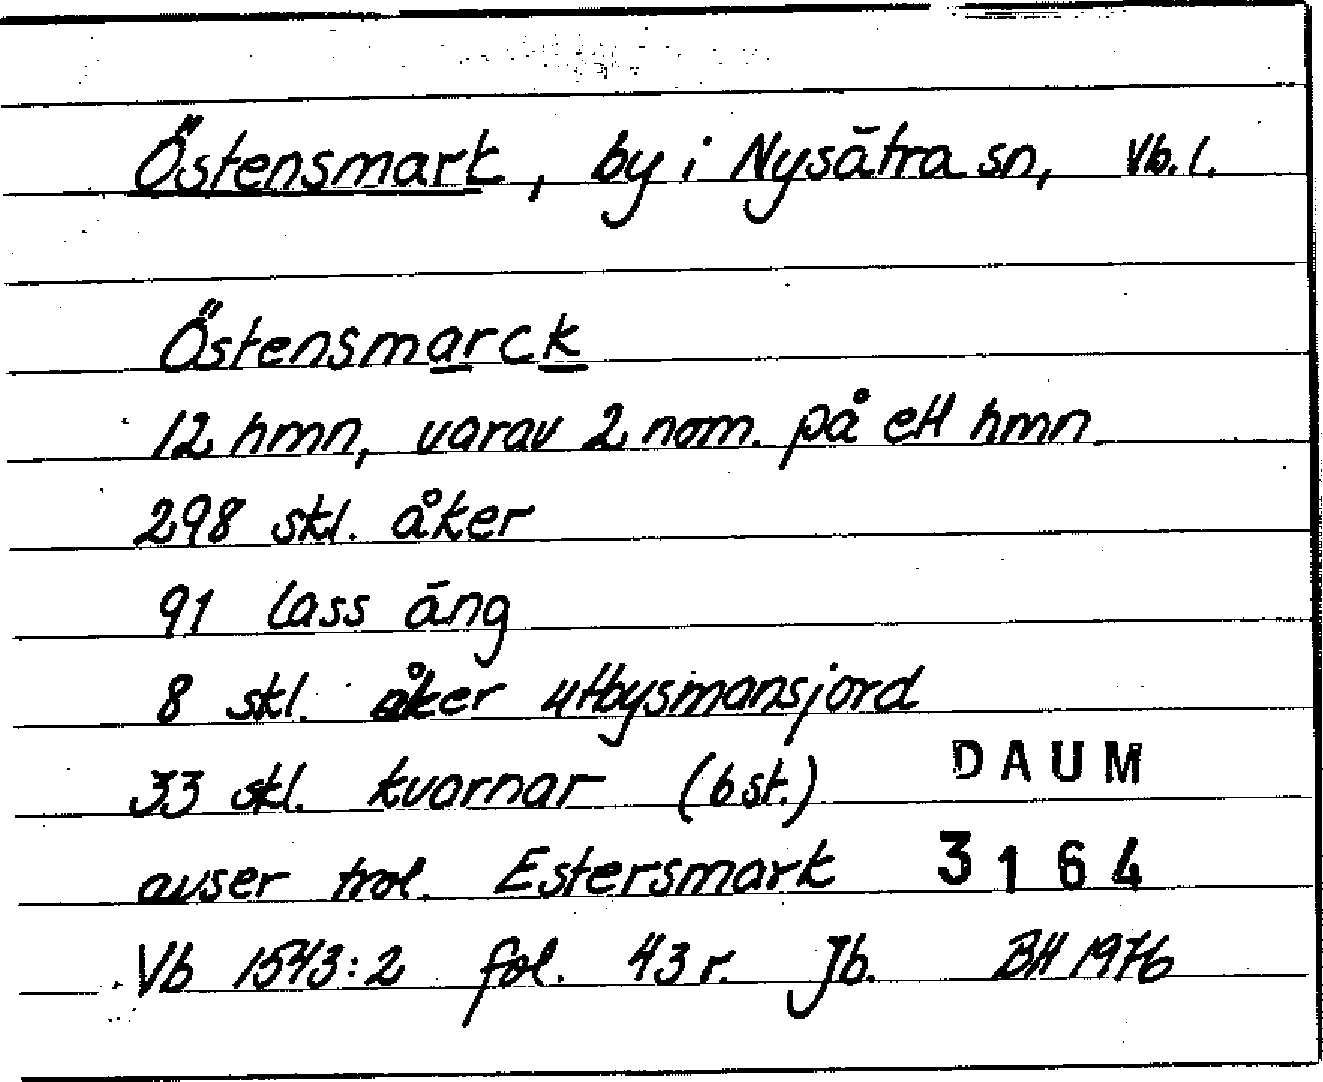 Östensmark, by i Nysätra sn, Vb. l.
Östensmarck
12 hmn, varav 2 nom. på ett hmn
298 skl. åker
91 lass äng
8 skl. åker utbysmansjord
33 skl. kvarnar (6 st.) DAUM
avser trol. Estersmark 3164
Vb 1543:2 fol. 43 r. Jb. BH 1976